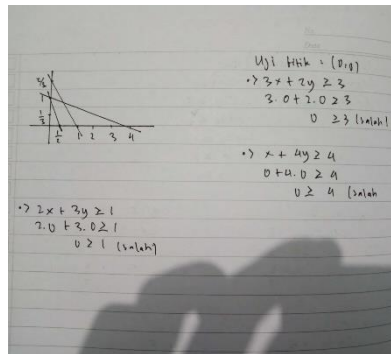 3/2
1
1/3
1/2 1 2 3 4
Uji titik = (0,0)
•> 3x + 2y ≥ 3
3.0 + 2.0 ≥ 3
0 ≥ 3 (salah)
•> x + 4y ≥ 4
0 + 4.0 ≥ 4
0 ≥ 4 (salah
•> 2x + 3y ≥ 1
2.0 + 3.0 ≥ 1
0 ≥ 1 (salah)